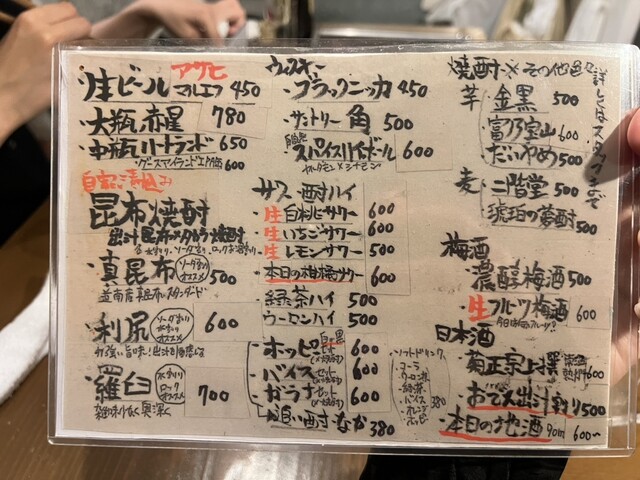 アサヒ
・生ビール マルエフ 450
・大瓶 赤星 780
・中瓶 ハートランド 650
600
自家漬込み
昆布焼酎
・真昆布 ソーダ割り オススメ 500
・利尻 ソーダ割り 水割り オススメ 600
・羅臼 水割り ロック オススメ 700
ウィスキー
・ブラックニッカ 450
・サントリー 角 500
・スパイスハイボール 600
カルダモン×シナモン
サワー・酎ハイ
・生白桃サワー 600
・生いちごサワー 600
・生レモンサワー 500
・本日の柑橘サワー 600
・緑茶ハイ 500
・ウーロンハイ 500
・ホッピー 白 黒 セット 600
・バイス セット 600
・ガラナ セット 600
お追い酎 なか 380
ソフトドリンク
・コーラ
・ウーロン茶
・緑茶
・バイス
・オレンジ
380
焼酎 ※その他色々
詳しくはスタッフまで
芋・金黒 500
・富乃宝山 600
・だいやめ 500
麦・二階堂 500
・琥珀の夢酎 500
梅酒
・濃醇梅酒 500
・生フルーツ梅酒 600
日本酒
・菊正宗上撰 600
・おでん出汁割り 500
・本日の地酒 90ml 600〜